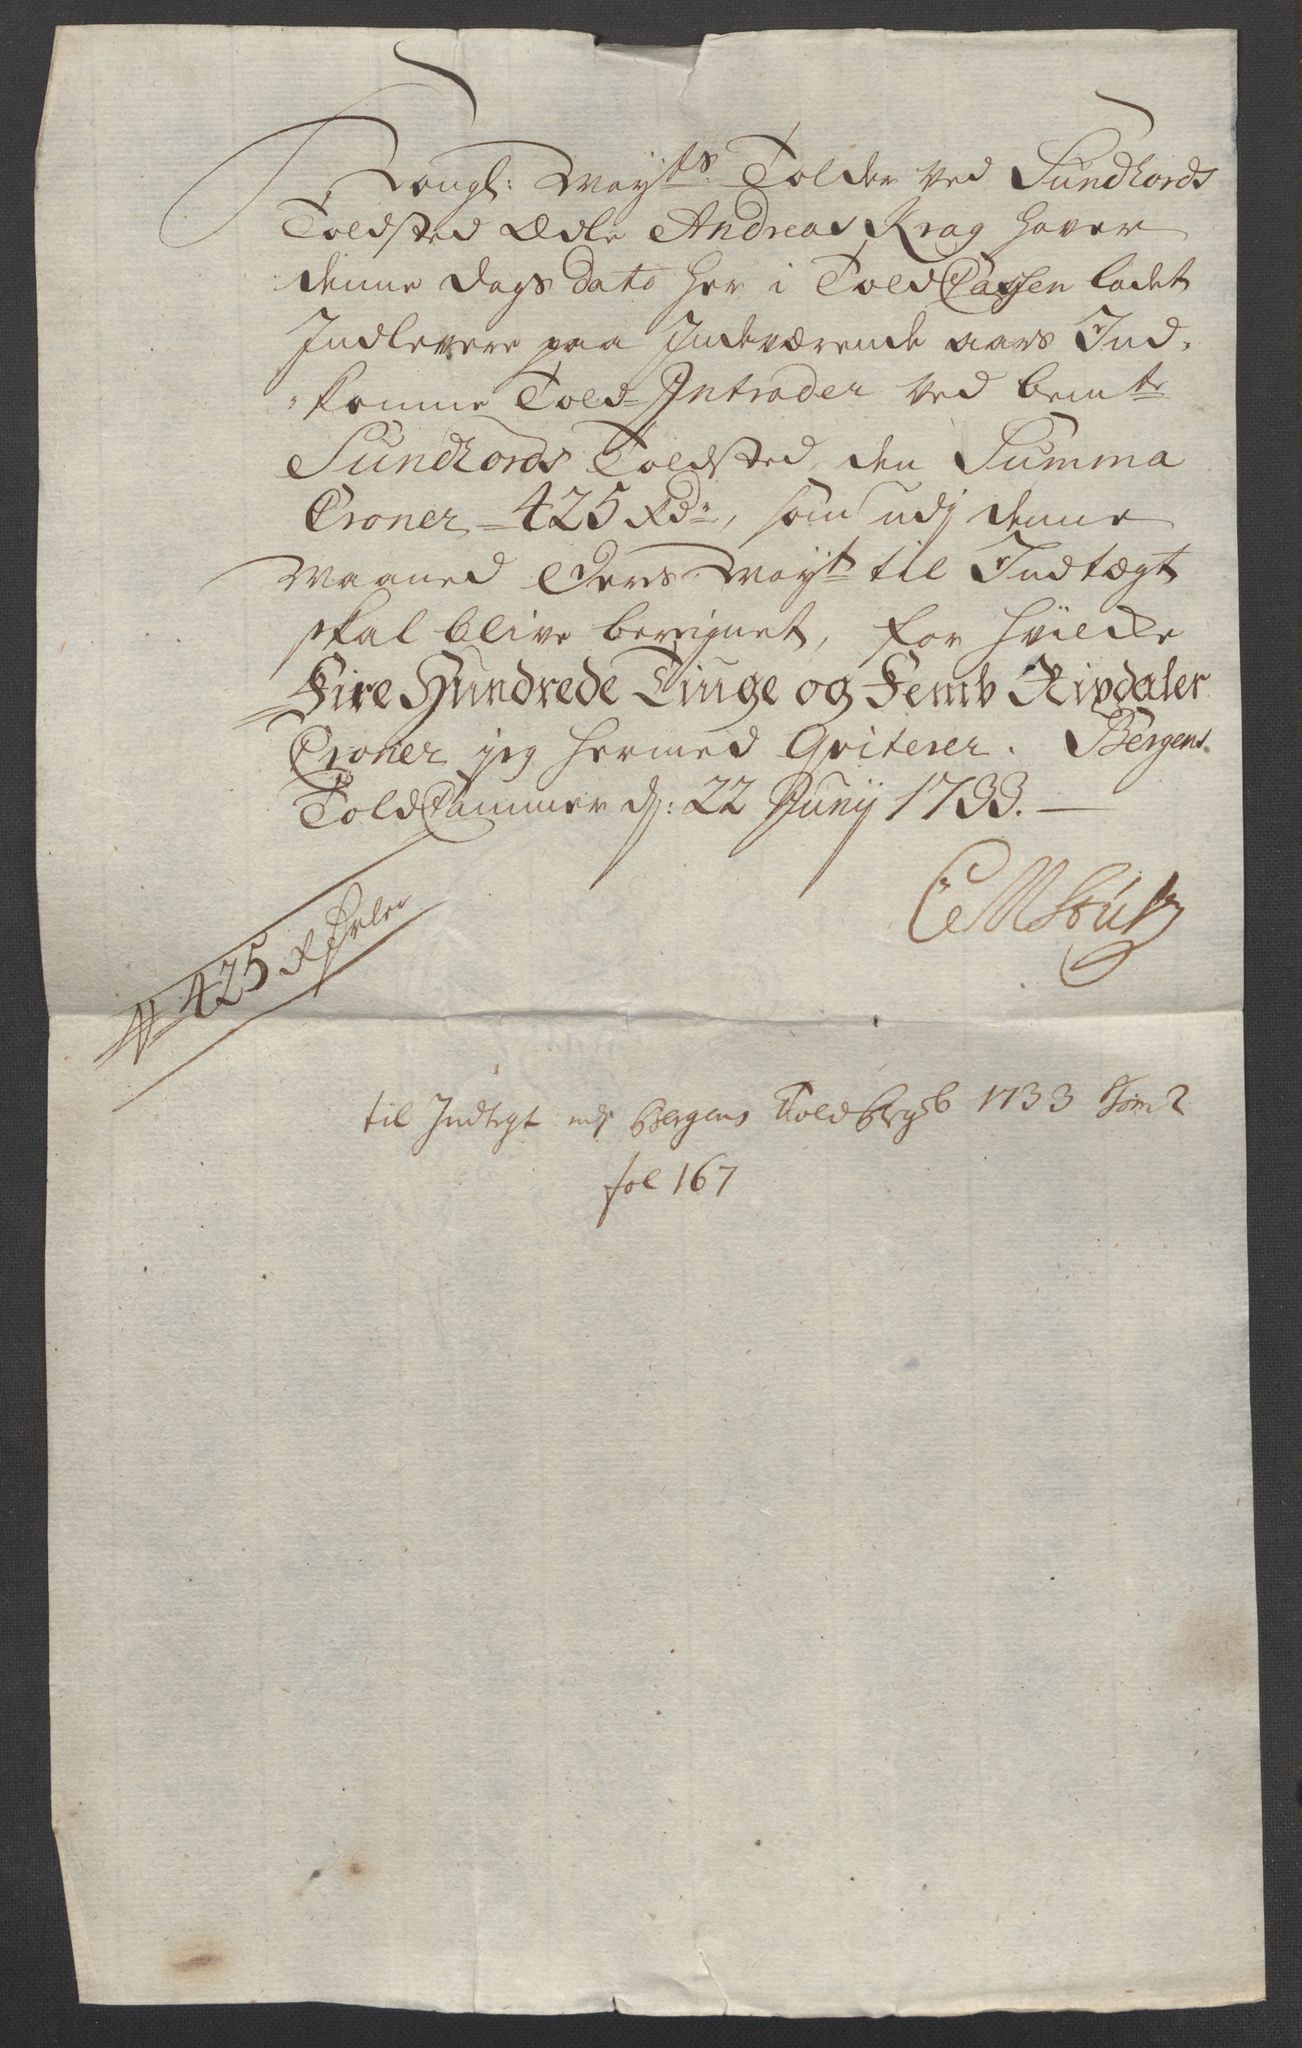 Kongl: May:ts Tolder Ved Sundhords
Toldsted Ædle Andreas Krag haver
denne Dags Dato her i Told Cassen ladet
Indlevere paa Indeværende aars Ind-
komme Told-Intrader Ved bemte
Sundhords Toldsted, den Summa
Croner 425 Rdr, som udj denne
Maaned Deris Mayt til Indtægt
skal blive beregnet, for hvilcke
Fire Hundrede Tiuge og Femb Rixdaler
Croner jeg hermed Qviterer. Bergens
Told Cammer d: 22 Junij 1733.
425 Rdaler
til Indtegt udj Bergens Told 1733
fol 167